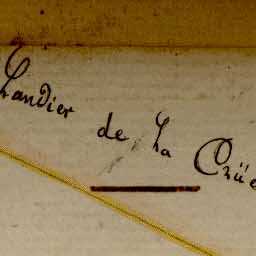 handier de La Crüe